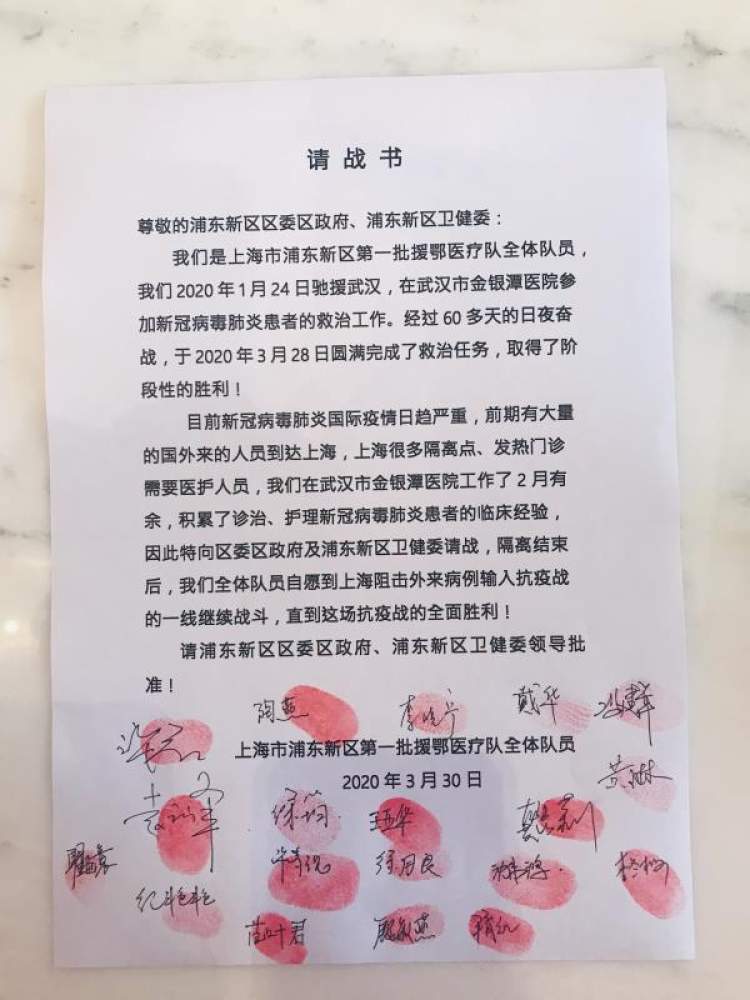 请战书
尊敬的浦东新区区委区政府、浦东新区卫健委：
我们是上海市浦东新区第一批援鄂医疗队全体队员，
我们2020年1月24日驰援武汉，在武汉市金银潭医院参
加新冠病毒肺炎患者的救治工作。经过60多天的日夜奋
战，于2020年3月28日圆满完成了救治任务，取得了阶
段性的胜利！
目前新冠病毒肺炎国际疫情日趋严重，前期有大量
的国外来的人员到达上海，上海很多隔离点、发热门诊
需要医护人员，我们在武汉市金银潭医院工作了2月有
余，积累了诊治、护理新冠病毒肺炎患者的临床经验，
因此特向区委区政府及浦东新区卫健委请战，隔离结束
后，我们全体队员自愿到上海阻击外来病例输入抗疫战
的一线继续战斗，直到这场抗疫战的全面胜利！
请浦东新区区委区政府、浦东新区卫健委领导批
准！
陶燕 戴华
上海市浦东新区第一批援鄂医疗队全体队员
2020年3月30日
黄琳
徐筠 王华
徐月良
纪艳艳
范叶君